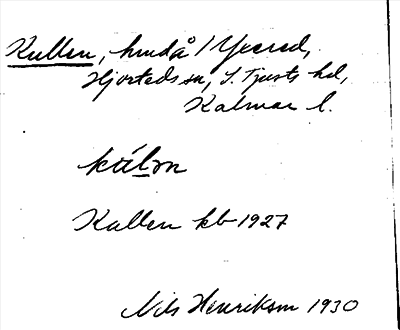 Kullen, hmdå / Ycered,
Hjorteds sn, S. Tjusts hd,
Kalmar l.
kúlən
Kullen kb 1927
Nils Henrikson 1930